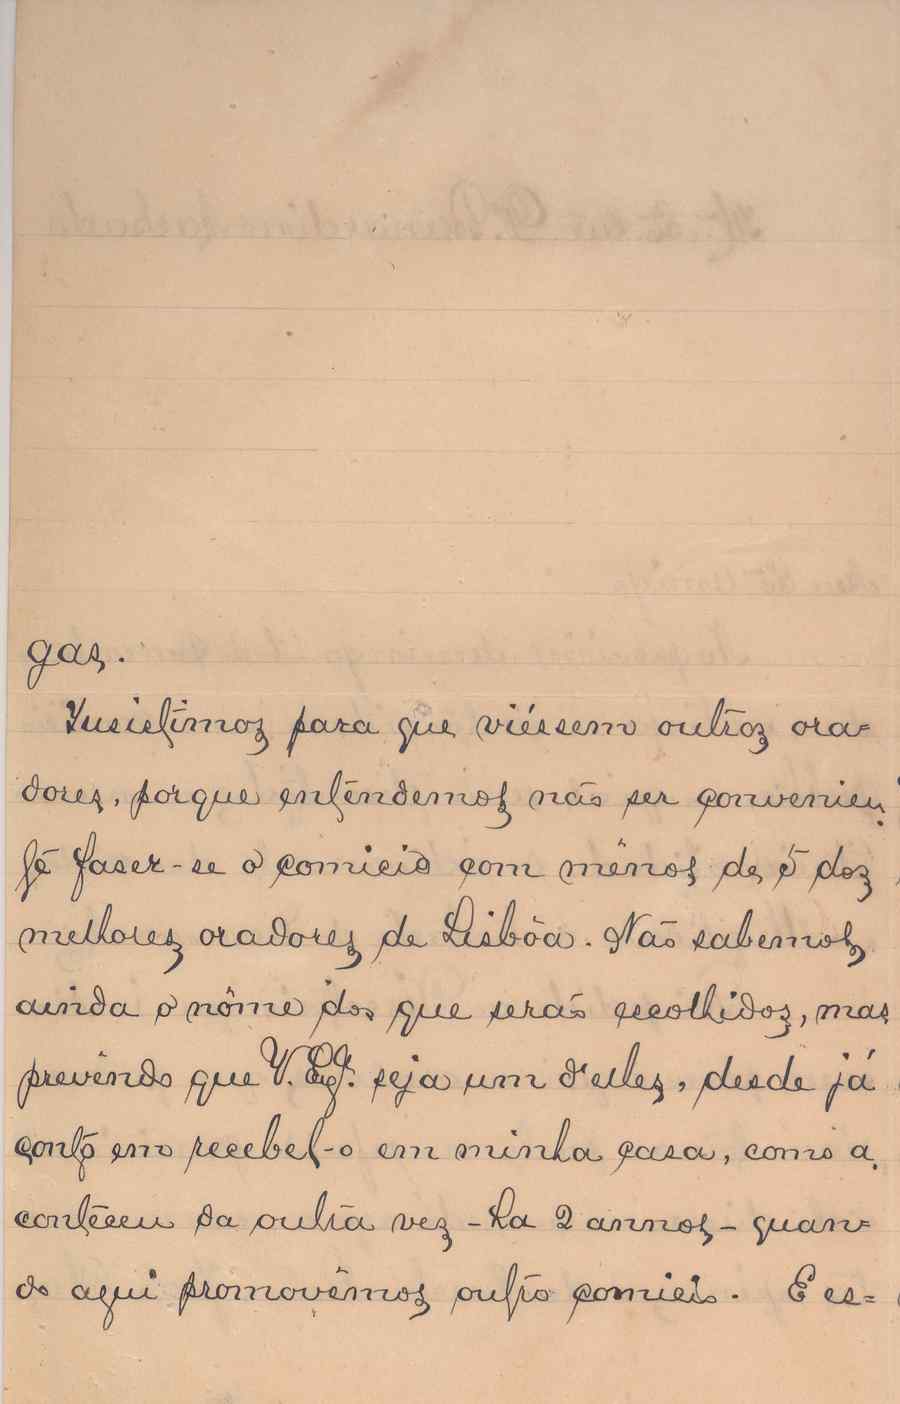 gas.
Insistimos para que viéssem outros ora=
dores, porque entendemos não ser convenien
te faser-se o comicio com mênos de 5 dos
melhores oradores de Lisbôa. Não sabemos
ainda o nôme dos que serão escolhidos, mas
prevêndo que V. Exª. seja um d'elles, desde já
conto em recebel-o em minha casa, como a
conteceu da outra vez - ha 2 annos - quan=
do aqui promovêmos outro comicio. E es=